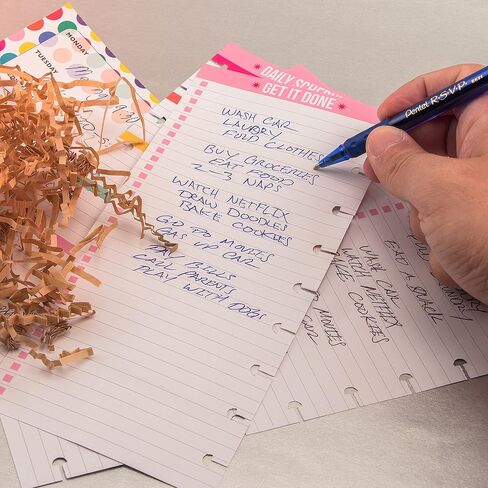 MONDAY
TUESDAY
DAILY
GET IT DONE
WASH CAR
LAUDRY
FOLD CLOTHES
BUY GROCERIES
EAT FOOD
2-3 NAPS
WATCH NETFLIX
DRAW DOODLES
BAKE COOKIES
GO TO MOVIES
GAS UP CAR
BILLS
CALL PARENTS
PLAY WITH DOGS
Pentel R·S·V·P
EAT A SNACK
WASH CAR
WATCH NETFLIX
COOKIES
MOVIES
CAR